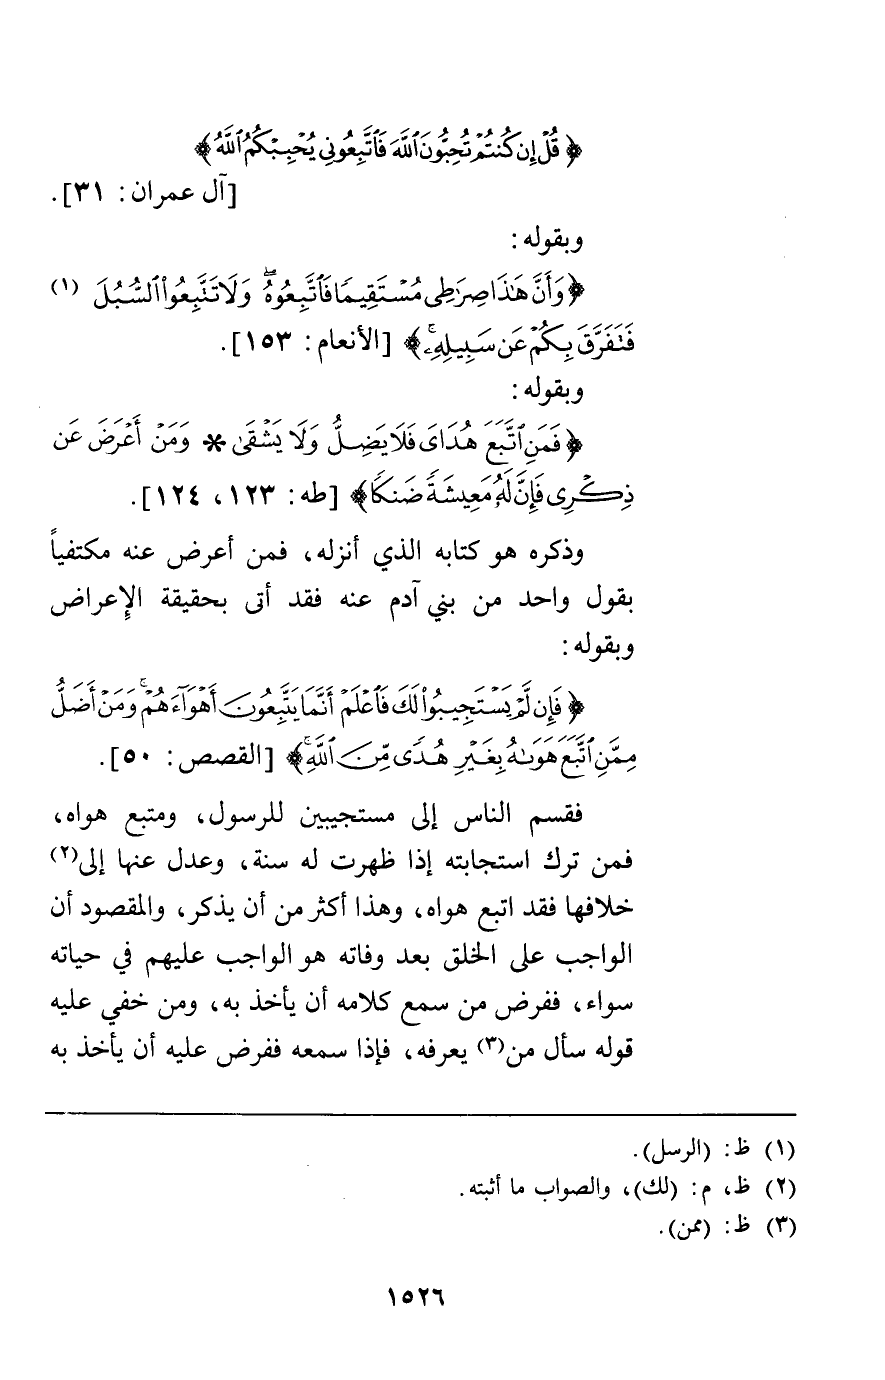 ﴿ قُلْ إِن كُنتُمْ تُحِبُّونَ ٱللَّهَ فَٱتَّبِعُونِى يُحْبِبْكُمُ ٱللَّهُ ﴾
[آل عمران: ٣١].
وبقوله:
﴿ وَأَنَّ هَٰذَا صِرَٰطِى مُسْتَقِيمًا فَٱتَّبِعُوهُۖ وَلَا تَتَّبِعُوا۟ ٱلسُّبُلَ (١)
فَتَفَرَّقَ بِكُمْ عَن سَبِيلِهِۦۚ ﴾ [الأنعام: ١٥٣].
وبقوله:
﴿ فَمَنِ ٱتَّبَعَ هُدَاىَ فَلَا يَضِلُّ وَلَا يَشْقَىٰ * وَمَنْ أَعْرَضَ عَن
ذِكْرِى فَإِنَّ لَهُۥ مَعِيشَةً ضَنكًا ﴾ [طه: ١٢٣، ١٢٤].
وذكره هو كتابه الذي أنزله، فمن أعرض عنه مكتفياً
بقول واحد من بني آدم عنه فقد أتى بحقيقة الإعراض
وبقوله:
﴿ فَإِن لَّمْ يَسْتَجِيبُوا۟ لَكَ فَٱعْلَمْ أَنَّمَا يَتَّبِعُونَ أَهْوَآءَهُمْۚ وَمَنْ أَضَلُّ
مِمَّنِ ٱتَّبَعَ هَوَىٰهُ بِغَيْرِ هُدًى مِّنَ ٱللَّهِۚ ﴾ [القصص: ٥٠].
فقسم الناس إلى مستجيبين للرسول، ومتبع هواه،
فمن ترك استجابته إذا ظهرت له سنة، وعدل عنها إلى(٢)
خلافها فقد اتبع هواه، وهذا أكثر من أن يذكر، والمقصود أن
الواجب على الخلق بعد وفاته هو الواجب عليهم في حياته
سواء، ففرض من سمع كلامه أن يأخذ به، ومن خفي عليه
قوله سأل من(٣) يعرفه، فإذا سمعه ففرض عليه أن يأخذ به
(١) ظ: (الرسل).
(٢) ظ، م: (لك)، والصواب ما أثبته.
(٣) ظ: (ممن).
١٥٢٦